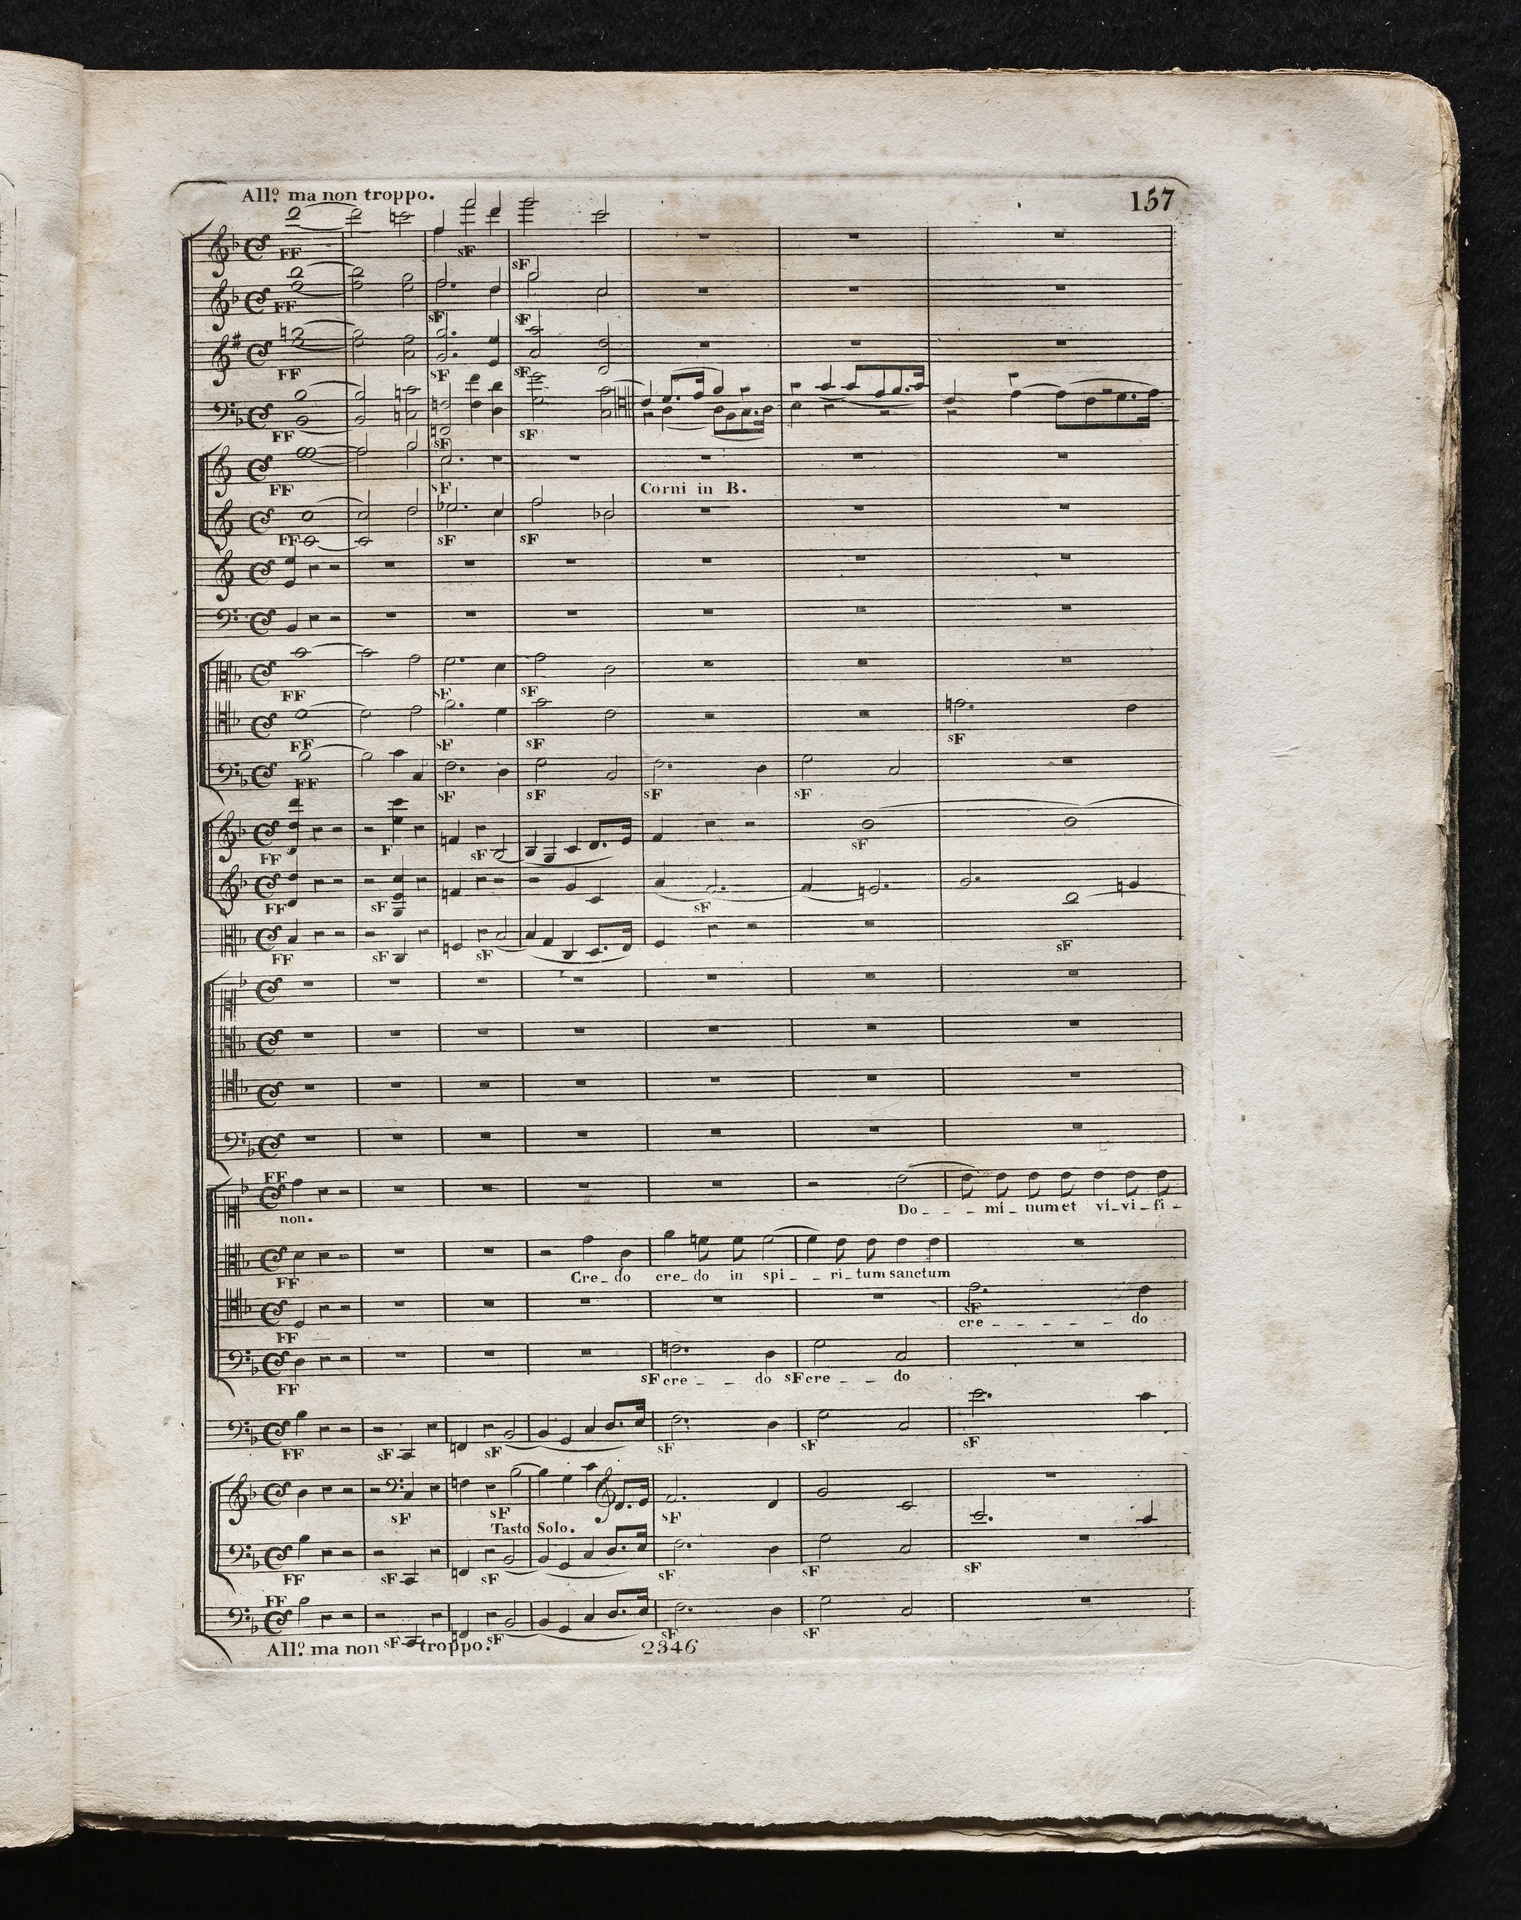 All.º ma non troppo.
157
FF
sF
sF
FF
sF
sF
FF
sF
sF
FF
sF
sF
FF
sF
Corni in B.
FF
sF
sF
FF
sF
sF
FF
sF
sF
sF
FF
sF
sF
sF
sF
FF
F
sF
sF
FF
sF
sF
FF
sF
sF
sF
FF
non.
Do - - - mi - num et vi - vi - fi -
FF
Cre - do cre - do in spi - - ri - tum sanctum
FF
sF
cre - - - - - do
FF
sF cre - - do sF cre - - do
FF
sF
sF
sF
sF
sF
sF
sF
sF
Tasto Solo.
FF
sF
sF
sF
sF
sF
FF
sF
sF
sF
sF
All.º ma non troppo.
2346